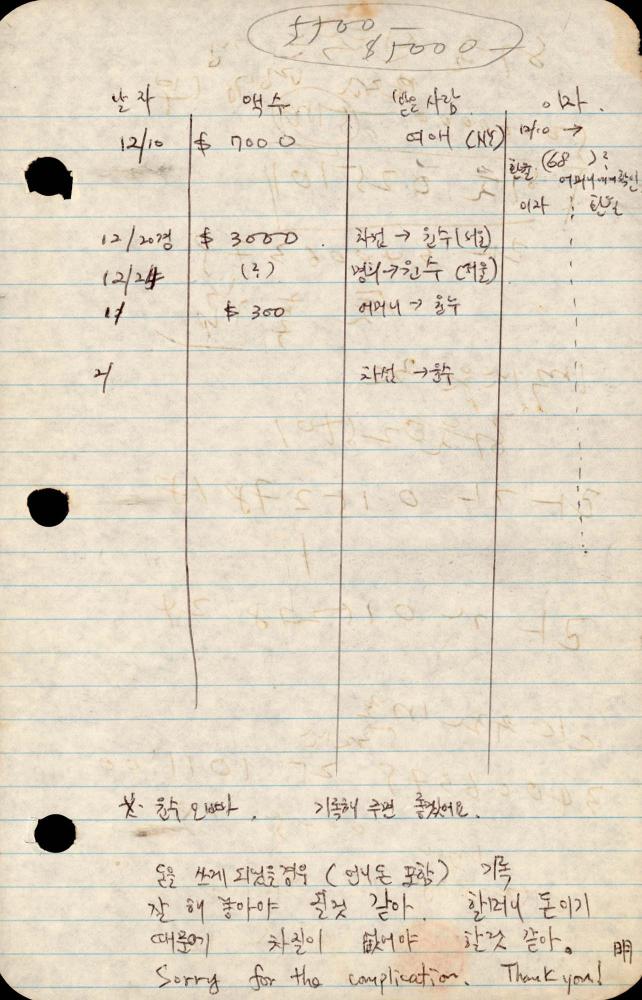 5500 -
$5000 -
날자 액수 받은 사람 이자.
12/10 $ 7000 여애 (NY) 12/10 →
환율 (68 )?
어머니에게 확인
이자 환율
12/20경 $ 3000 차섭 → 윤수 (서울)
12/24 (?) 명희 → 윤수 (서울)
1/ $ 300 어머니 → 윤수
2/ 차섭 → 윤수
윤수 오빠. 기록해 주면 좋겠어요.
돈을 쓰게 되었을 경우 (언니 돈 포함) 기록
잘 해 놓아야 될것 같아. 할머니 돈이기
때문에 차질이 없어야 할것 같아.
Sorry for the complication. Thank you!
明